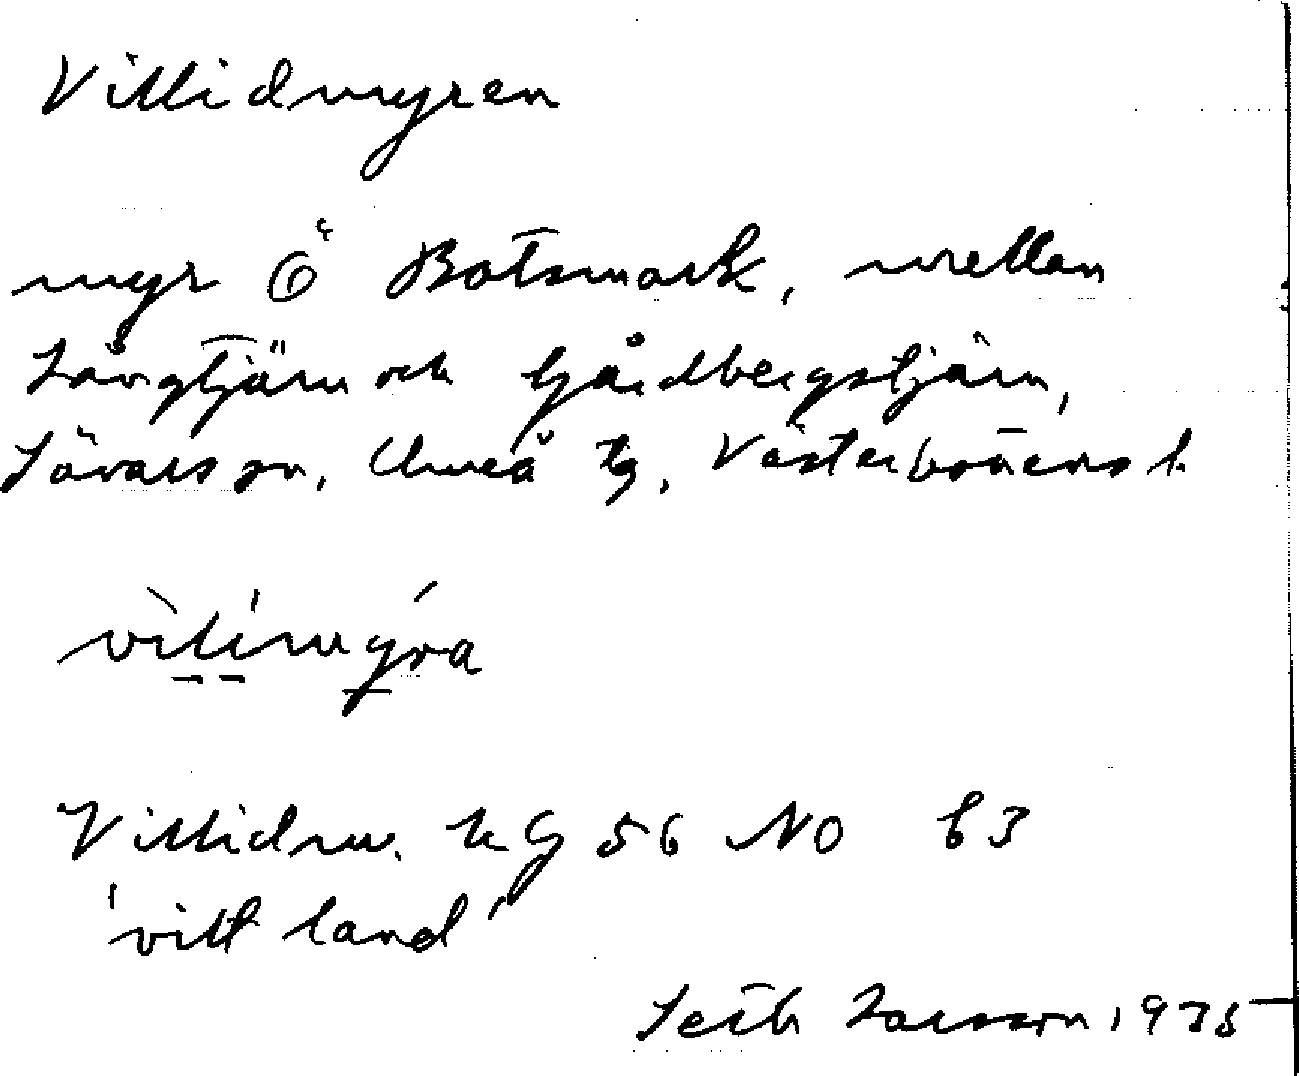 Villidmyren
myr Ö Botsmark, mellan
Långtjärn och Gårdbergstjärn,
Sävars sn, Umeå tg, Västerbottens l.
vitimýra
Villidm. kg 56 NO b3
'vitt land'
Seth Larsson 1975